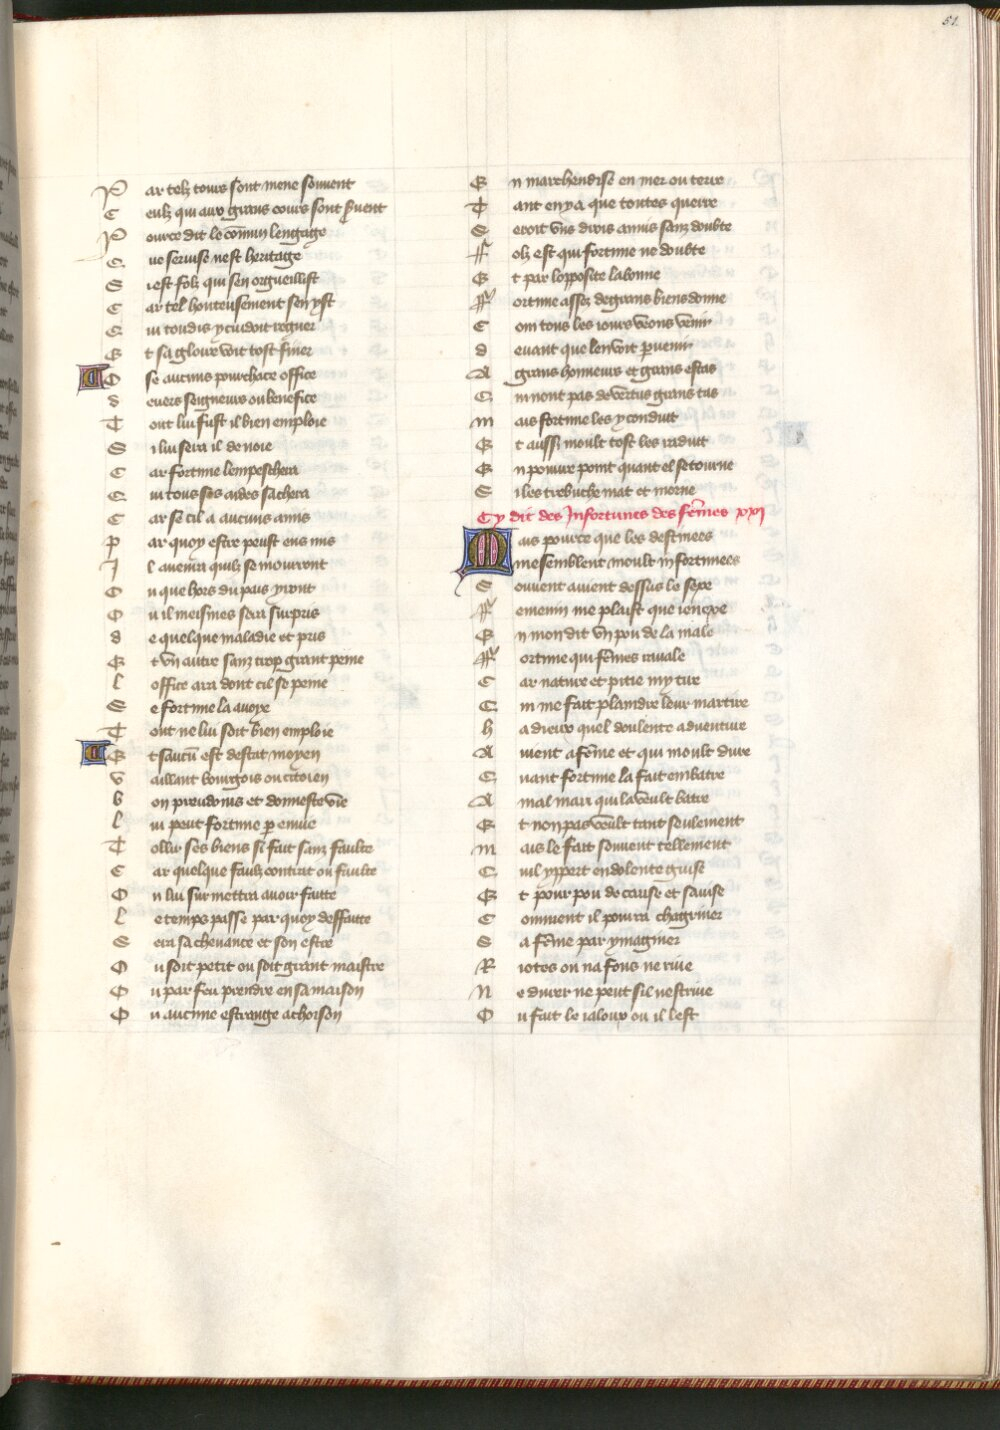 51
Par telz tours sont mene souvent
Ceulz qui aux grans cours sont servent
Pource dit le commun lengage
Que servise nest heritage
Si est folz qui sen orgueillist
Car tel honteusement sen yst
Qui toudis y cuidoit regner
Et sa gloire voit tost finer
O se aucuns pourchace office
devers seigneurs ou benefice
Tout lui fust il bien emploie
Si lui sera il denoie
Car fortune lempeschera
Qui tous ses aides sachera
Car se cil a aucuns amis
par quoy estre peust ens mis
Il avenra quilz se mourront
Ou que hors du pais yront
Ou il meismes sera surpris
de quelque maladie et pris
Et un autre sanz trop grant peine
loffice ara dont cil se peine
Se fortune la avoye
Tout ne lui soit bien emploie
Et saucun est destat moyen
vaillant bourgois ou citoien
bon preudoms et donneste vie
lui peut fortune par envie
Tollir ses biens si fait sanz faulte
Car quelque faulz contrat ou faulte
On lui surmettra avoir faitte
le temps passe par quoy deffaitte
Sera sa chevance et son estre
Ou soit petit ou soit grant maistre
Ou par feu prendre en sa maison
Ou aucune estrange achoison
En marchendise en mer ou terre
Tant en y a que toutes querre
Seroit uns divis annis sanz doubte
Folz est qui fortune ne doubte
Et par lopposite la bonne
Fortune assez de grans biens donne
Com tous les jours veons venir
devant que len voit parvenir
A grans honneurs et grans estas
Qui nont pas de vertus grans tas
mais fortune les y conduit
Et aussi moult tost les raduit
En povure point quant el se tourne
Si les trebuche mat et morne
Cy dit des Infortunes des femes xxi
Mais pource que les destinees
me semblent moult infortunees
Souvent avient dessus le sexe
Femenin me plaist que ienexe
En mon dit un pou de la male
Fortune qui femes ravale
Car nature et pitie my tire
Qui me fait plaindre leur martire
ha dieux quel doulente adventure
Avient a feme et qui moult dure
Quant fortune la fait embatre
A mal mari qui la veult batre
Et non pas veult tant seulement
mais le fait souvent tellement
Quil y ppert en dolente guise
Et pour pou de cause et savise
Comment il pourra chagriner
Sa feme par ymaginer
Riotes ou na fons ne rive
Ne durer ne peut sil nestrive
Ou fait le ialoux ou il lest